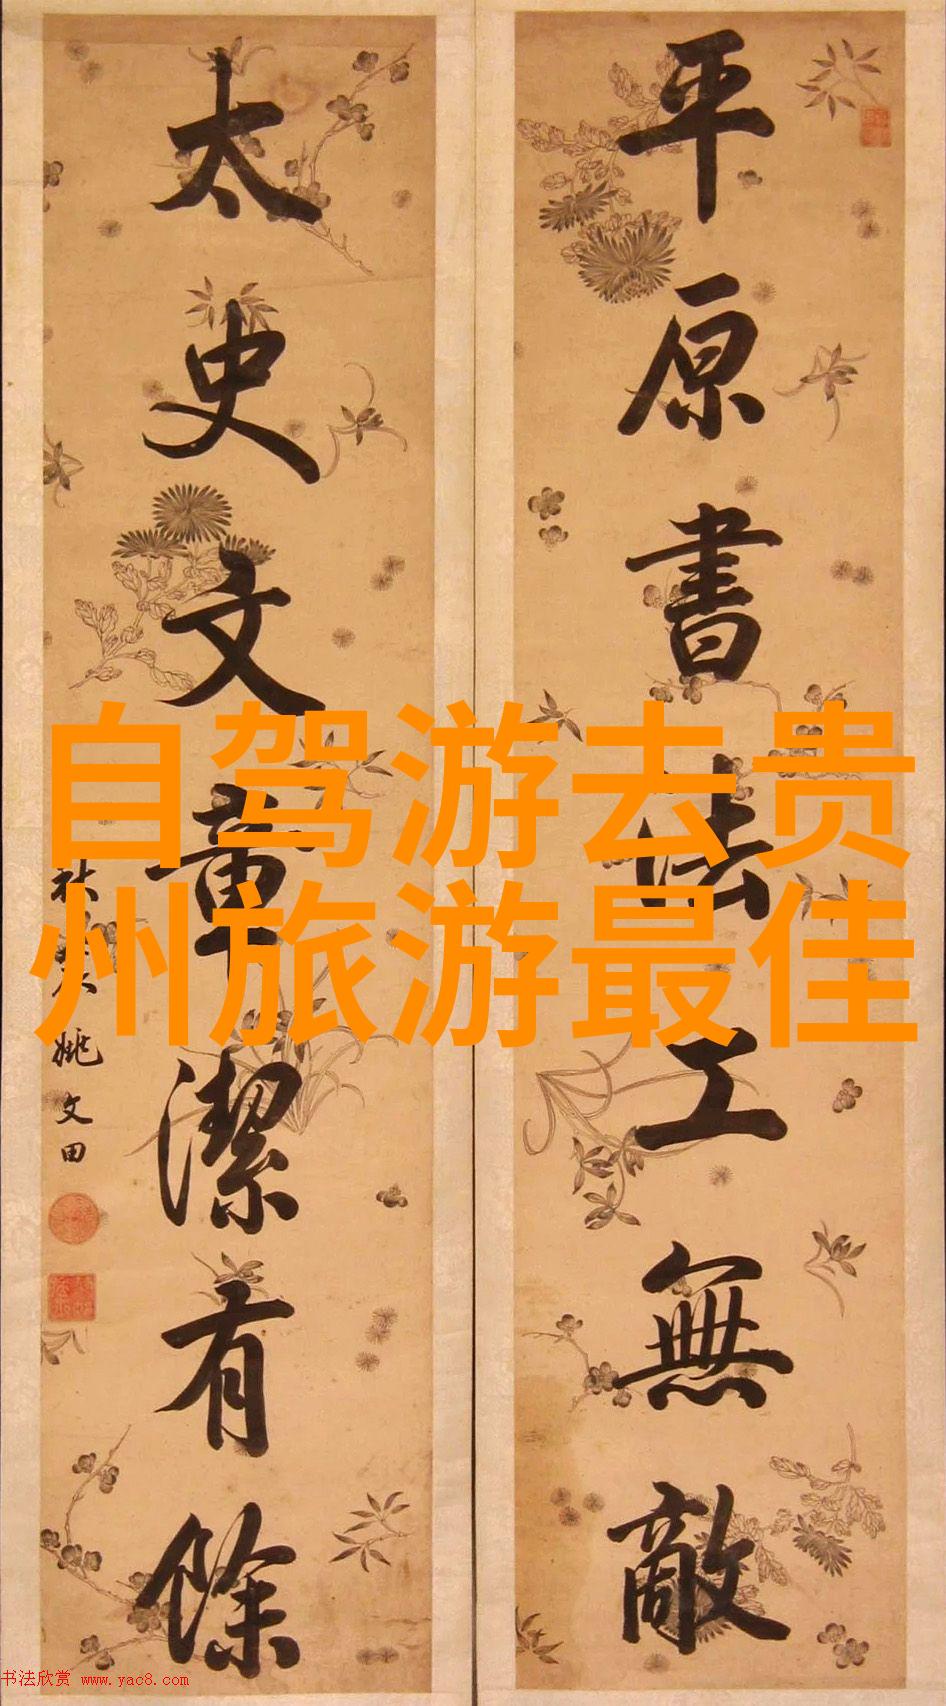 平原書法工無敵
太史文章潔有餘
秋農姚文田
自驾游去贵
州旅游最佳
书法欣赏 www.yac8.com